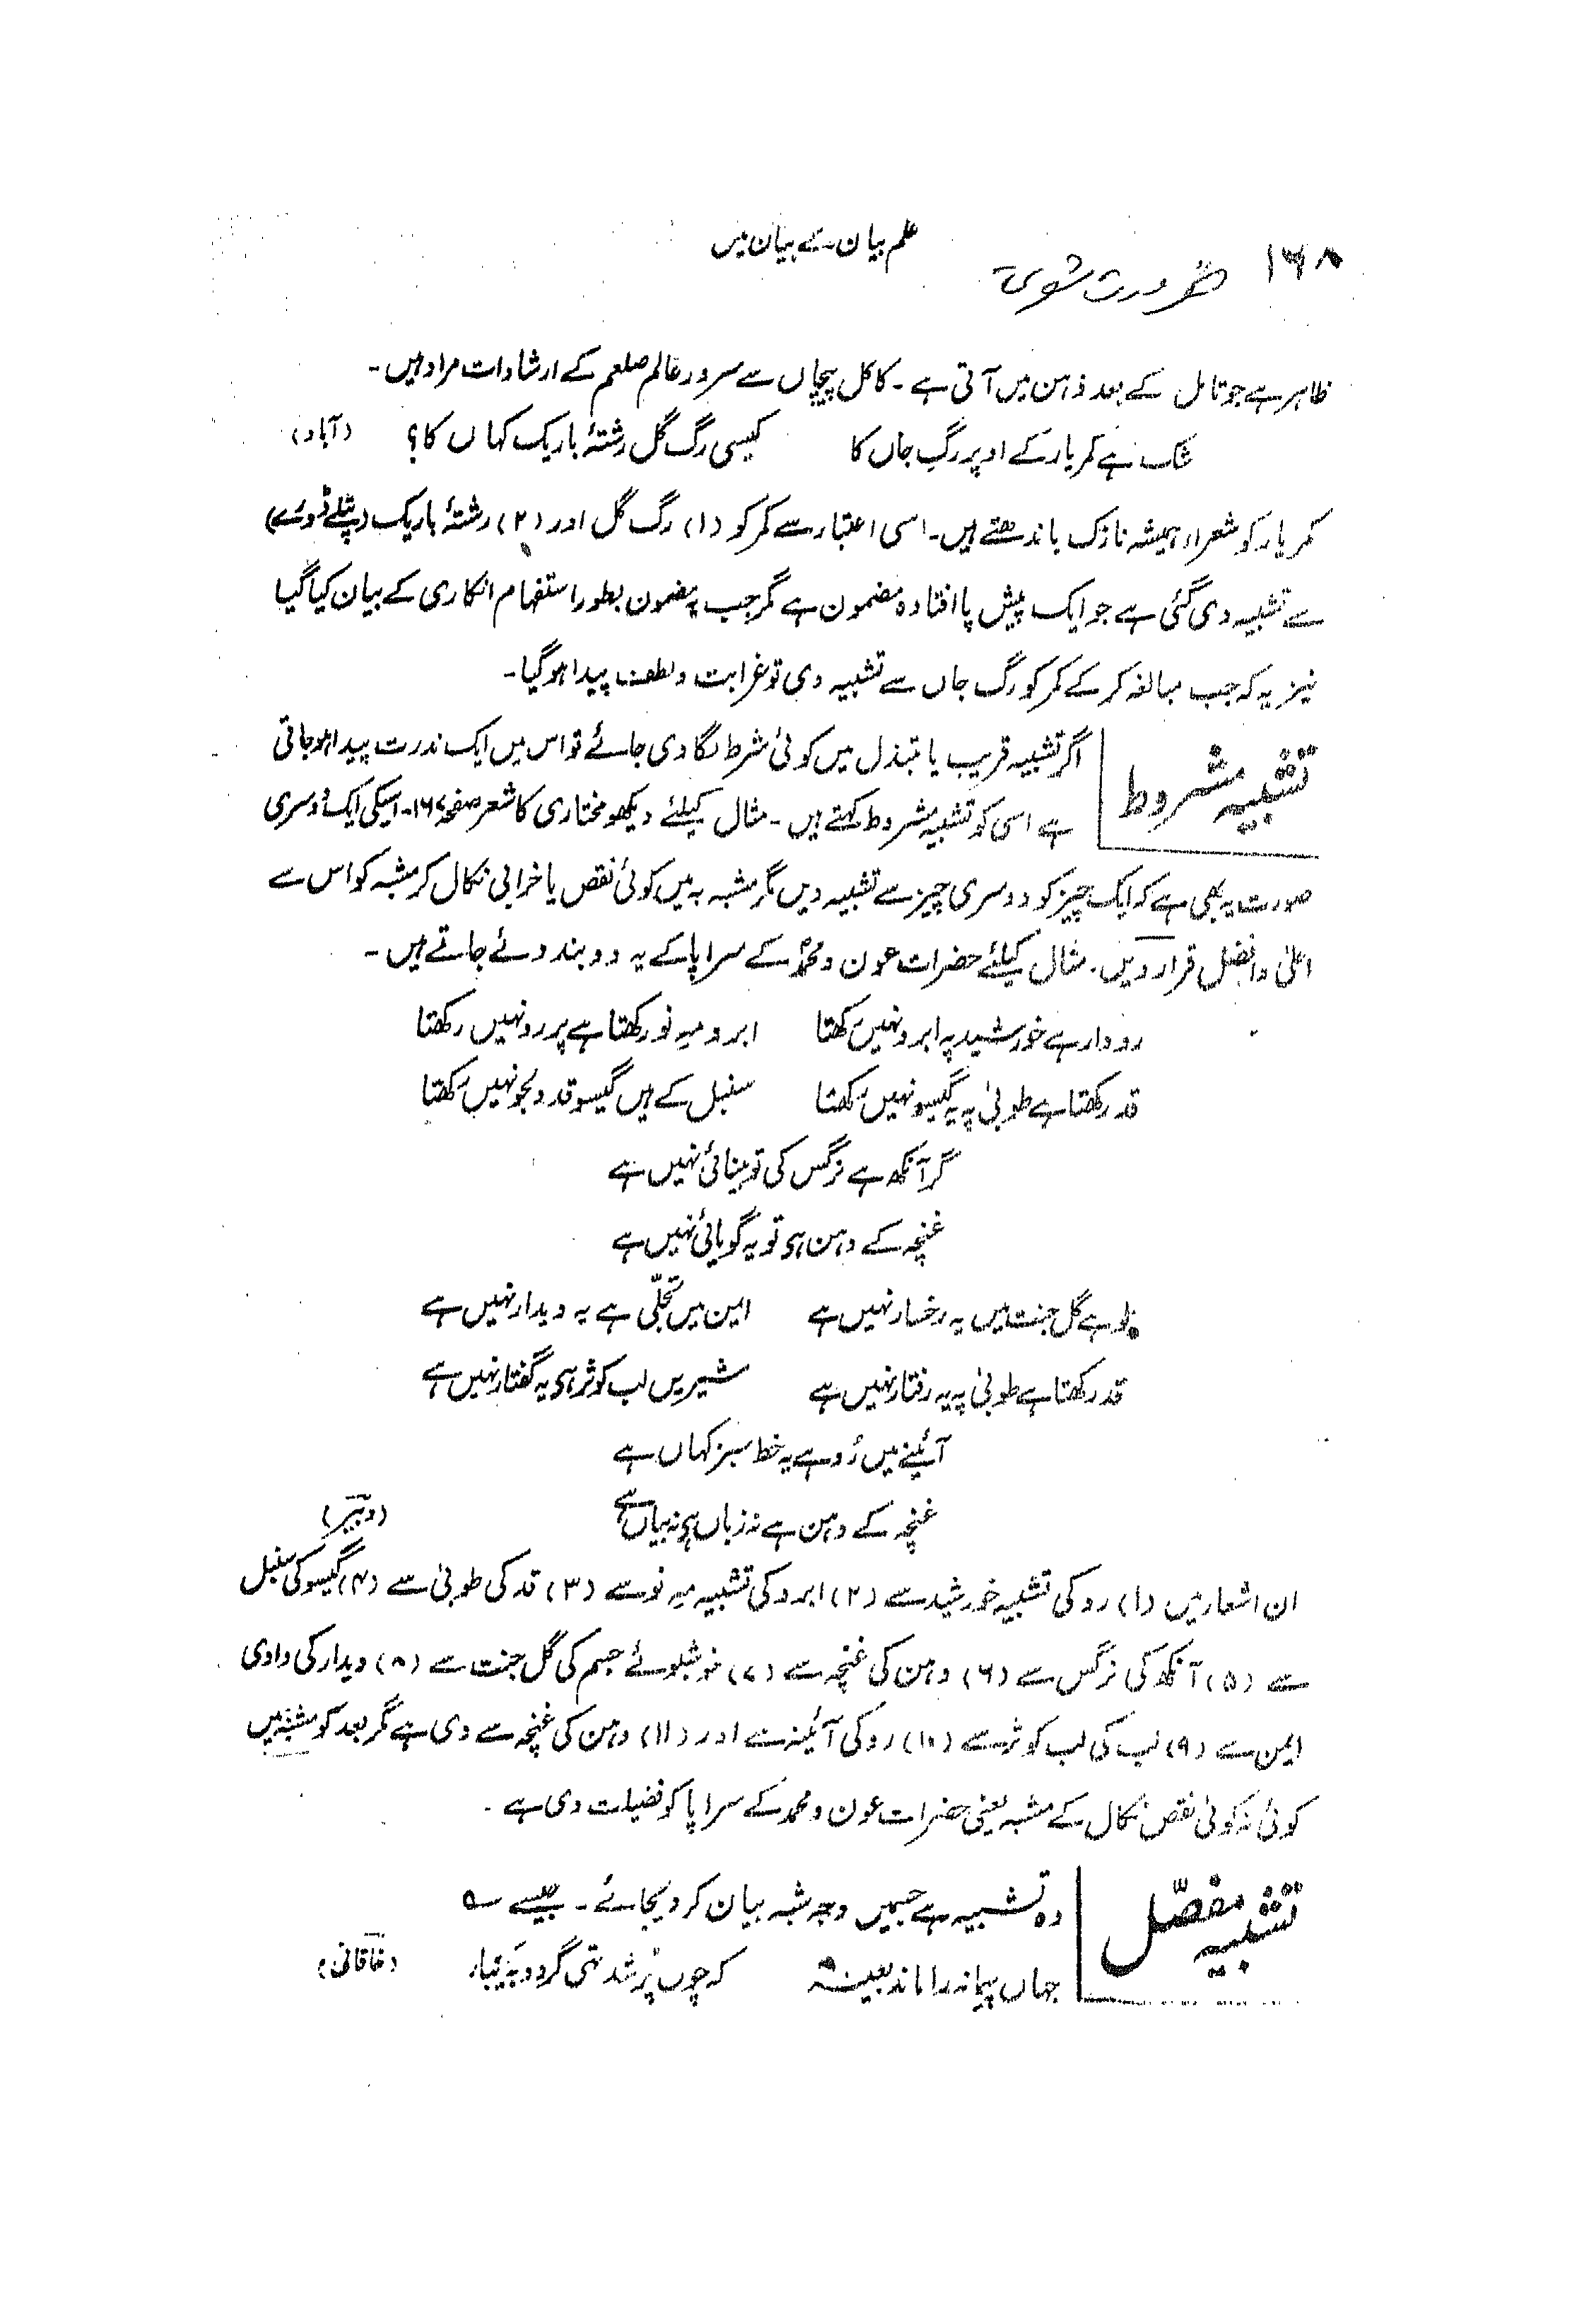 ۱۶۸
علم بیان کے بیان میں
ضرورت شعری
ظاہر ہے جو تامل کے بعد ذہن میں آتی ہے۔ کاکل پیچاں سے سرور عالم صلعم کے ارشادات مراد ہیں۔
شک ہے کمر یار کے اوپر رگِ جاں کا کیسی رگ گل رشتۂ باریک کہاں کا؟ (آباد)
کمر یار کو شعراء ہمیشہ نازک باندھتے ہیں۔ اسی اعتبار سے کمر کو (۱) رگ گل اور (۲) رشتۂ باریک (پتلے ڈورے)
سے تشبیہ دی گئی ہے جو ایک پیش پا افتادہ مضمون ہے مگر جب یہ مضمون بطور استفہام انکاری کے بیان کیا گیا
نیز یہ کہ جب مبالغہ کر کے کمر کو رگ جاں سے تشبیہ دی تو غرابت و لطف پیدا ہو گیا۔
تشبیہ مشروط
اگر تشبیہ قریب یا مبتذل میں کوئی شرط لگا دی جائے تو اس میں ایک ندرت پیدا ہو جاتی
ہے اسی کو تشبیہ مشروط کہتے ہیں۔ مثال کیلئے دیکھو مختاری کا شعر صفحہ ۱۶۷۔ اسکی ایک دوسری
صورت یہ بھی ہے کہ ایک چیز کو دوسری چیز سے تشبیہ دیں مگر مشبہ بہ میں کوئی نقص یا خرابی نکال کر مشبہ کو اس سے
اعلیٰ و افضل قرار دیں۔ مثال کیلئے حضرات عون و محمدؑ کے سراپا کے یہ دو بند دئے جاتے ہیں۔
رو دار ہے خورشید پہ ابرو نہیں رکھتا ابرو مہِ نو رکھتا ہے پر رو نہیں رکھتا
قد رکھتا ہے طوبیٰ پہ یہ گیسو نہیں رکھتا سنبل کے ہیں گیسو قد دلجو نہیں رکھتا
گر آنکھ ہے نرگس کی تو بینائی نہیں ہے
غنچہ کے دہن ہی تو یہ گویائی نہیں ہے
بو ہے گل جنت میں پہ رخسار نہیں ہے ایمن میں تجلّی ہے پہ دیدار نہیں ہے
قد رکھتا ہے طوبیٰ پہ یہ رفتار نہیں ہے شیریں لب کوثر ہی یہ گفتار نہیں ہے
آئینے میں رُو ہے یہ خط سبز کہاں ہے
غنچہ کے دہن ہے نہ زباں ہی نہ بیاں ہے
(دبیر)
ان اشعار میں (۱) رو کی تشبیہ خورشید سے (۲) ابرو کی تشبیہ مہِ نو سے (۳) قد کی طوبیٰ سے (۴) گیسو کی سنبل
سے (۵) آنکھ کی نرگس سے (۶) دہن کی غنچہ سے (۷) خوشبوئے جسم کی گل جنت سے (۸) دیدار کی وادی
ایمن سے (۹) لب کی لب کوثر سے (۱۰) رو کی آئینہ سے اور (۱۱) دہن کی غنچہ سے دی ہے مگر بعد کو مشبہ میں
کوئی نہ کوئی نقص نکال کے مشبہ یعنی حضرات عون و محمد کے سراپا کو فضیلت دی ہے۔
تشبیہ مفصّل
وہ تشبیہ ہے جسمیں وجہ شبہ بیان کر دیجائے۔ جیسے ؎
جہاں پیمانہ را ماند بعینہ کہ چوں پُر شد تہی گردد بیکبار (خاقانی)